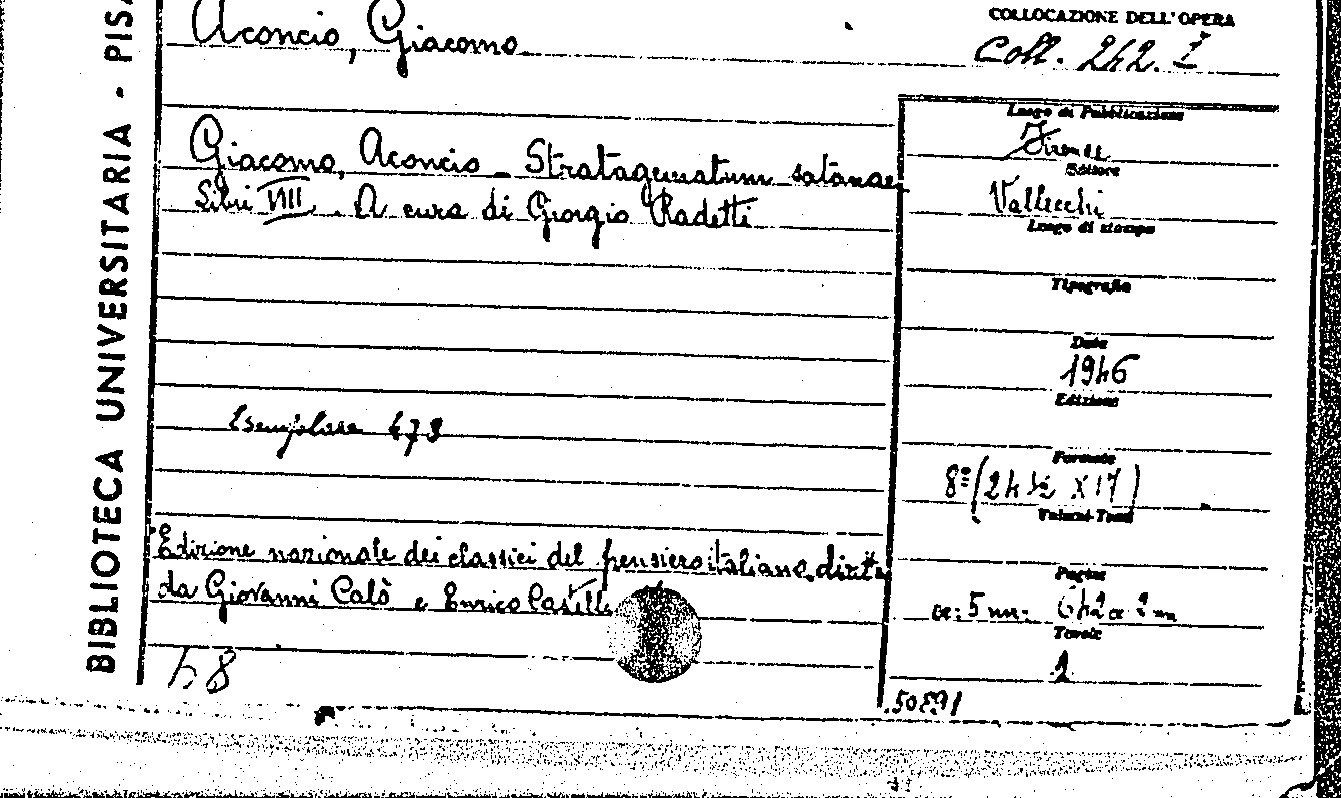 BIBLIOTECA UNIVERSITARIA - PISA
Aconcio, Giacomo
COLLOCAZIONE DELL'OPERA
Coll. 242. I
Giacomo, Aconcio - Stratagematum satanae
Libri VIII. A cura di Giorgio Radetti
Esemplare 473
Edizione nazionale dei classici del pensiero italiano, diretta
da Giovanni Calò e Enrico Castelli
48
Luogo di Pubblicazione
Firenze
Editore
Vallecchi
Luogo di stampa
Tipografia
Data
1946
Edizione
Formato
8° (24 ½ X 17)
Volumi-Tomi
Pagine
cc. 5 nn. 642 c. 2 nn
Tavole
1